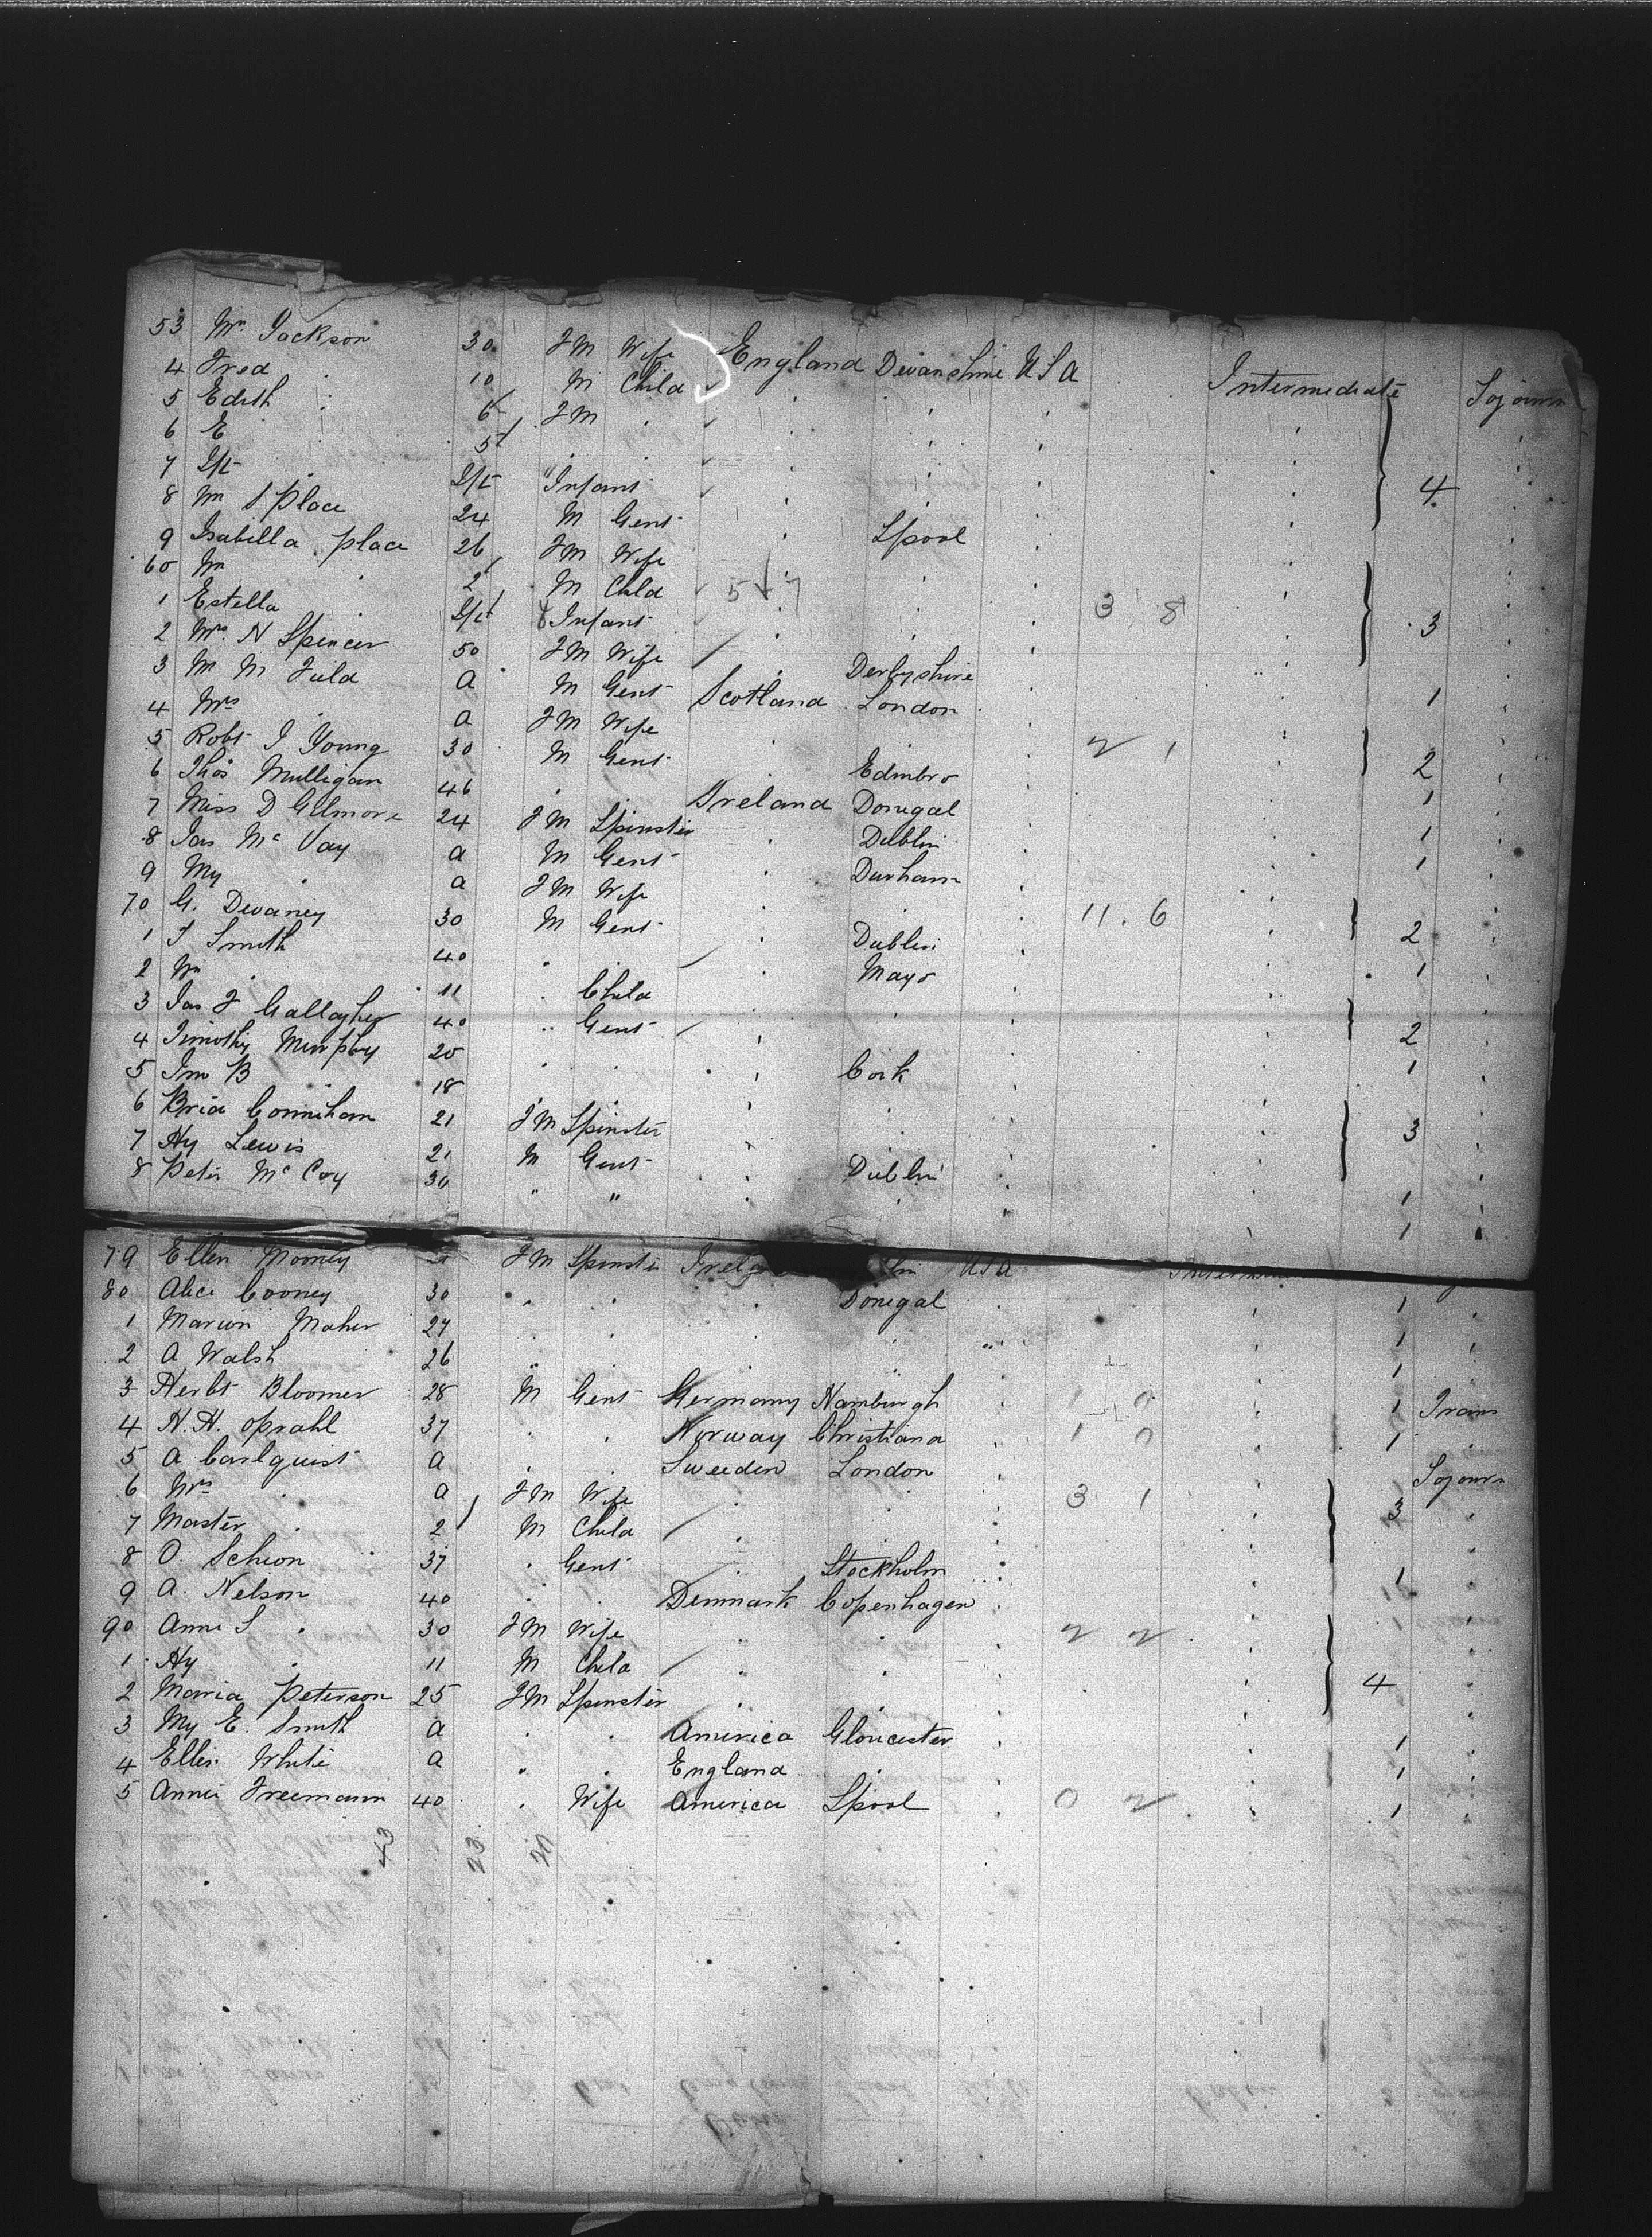 53 Mrs Jackson 30 FM Wife England Devonshire USA Intermediate Sojourn
4 Fred " 10 M Child
5 Edith " 6 FM "
6 E " 5
7 Inft " Inft " Infant 4
8 Wm S Place 24 M Gent Lpool
9 Isabella Place 26 FM Wife
60 Wm " 2 M Child 5 7
1 Estella Inft F Infant 3 8 3
2 Mrs N Spencer 50 FM Wife Derbyshire 1
3 M M Fuld a M Gent Scotland London
4 Mrs " a FM Wife 2 1 2
5 Robt J Young 30 M Gent Edinbro 1
6 Thos Mulligan 46 " " Ireland Donegal 1
7 Miss D Gilmore 24 FM Spinster Dublin 1
8 Jas Mc Vay a M Gent Durham
9 My " a FM Wife 11 6 2
70 G. Devaney 30 M Gent Dublin 1
1 J Smith 40 " " Mayo
2 Wm " 11 " Child 2
3 Jas F Gallagher 40 " Gent 1
4 Timothy Murphy 20 " " Cork
5 Jno B " 18 " "
6 Brid Counihan 21 FM Spinster 3
7 Hy Lewis 21 M Gent Dublin 1
8 Peter Mc Coy 30 " " 1
79 Ellen Mooney FM Spinster USA
80 Alice Cooney 30 " " " Donegal 1
1 Marion Maher 27 " " 1
2 A Walsh 26 " " 1
3 Herbt Bloomer 28 M Gent Germany Hamburgh 1 0 1 Trans
4 H. H. Oprahl 37 " " Norway Christiana 1 0 1 "
5 A Carlquist a " " Sweeden London Sojourn
6 Mrs " a FM Wife 3 1 3
7 Master " 2 M Child
8 O. Schion 37 " Gent " Stockholm 1
9 A. Nelson 40 " " Denmark Copenhagen
90 Anna S " 30 FM Wife 2 2
1 Hy " 11 M Child
2 Maria Peterson 25 FM Spinster 4
3 My E. Smith a " " America Gloucester 1
4 Ellen White a " " England " 1
5 Annie Freemann 40 " Wife America Lpool 0 2 1
43 23 20